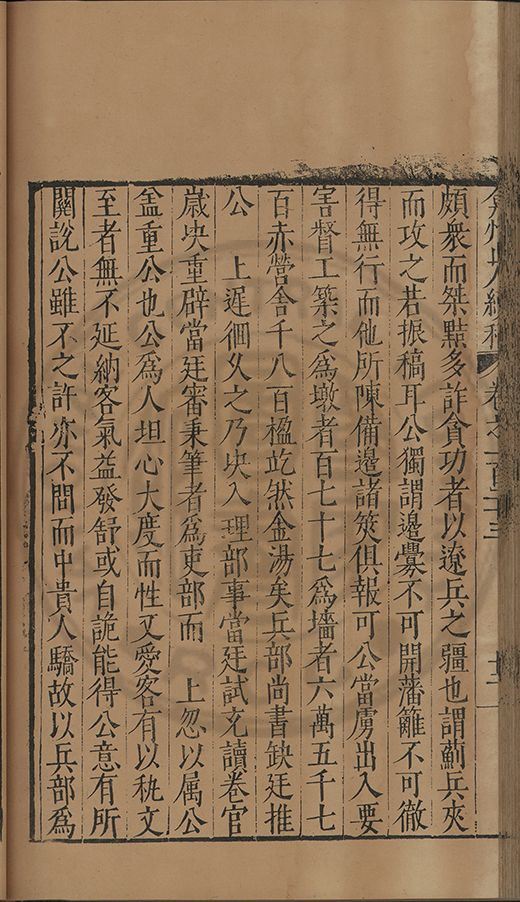 弇州山人續稿 卷之一百二十三 十二
頗衆而桀黠多詐貪功者以遼兵之彊也謂薊兵夾
而攻之若振稿耳公獨謂邊釁不可開藩籬不可徹
得無行而他所陳備邊諸筴俱報可公當虜出入要
害督工築之爲墩者百七十七爲墻者六萬五千七
百赤營舍千八百楹屹然金湯矣兵部尚書缺廷推
公 上遲徊久之乃央入理部事當廷試充讀卷官
歲央重辟當廷審秉筆者爲吏部而 上忽以属公
盖重公也公爲人坦心大度而性又愛客有以執文
至者無不延納客氣益發舒或自詭能得公意有所
關說公雖不之許亦不問而中貴人驕故以兵部爲